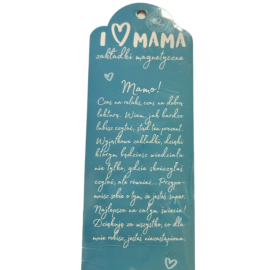 I ♡ MAMA
zakładki magnetyczne
Mamo!
Czas na relaks, czas na dobrą
lekturę. Wiem, jak bardzo
lubisz czytać, stąd ten prezent.
Wyjątkowe zakładki, dzięki
którym będziesz wiedziała
nie tylko, gdzie skończyłaś
czytać, ale również... Przypo-
mnisz sobie o tym, że jesteś super.
Najlepsza na całym świecie!
Dziękuję za wszystko, co dla
mnie robisz, jesteś niezastąpiona.